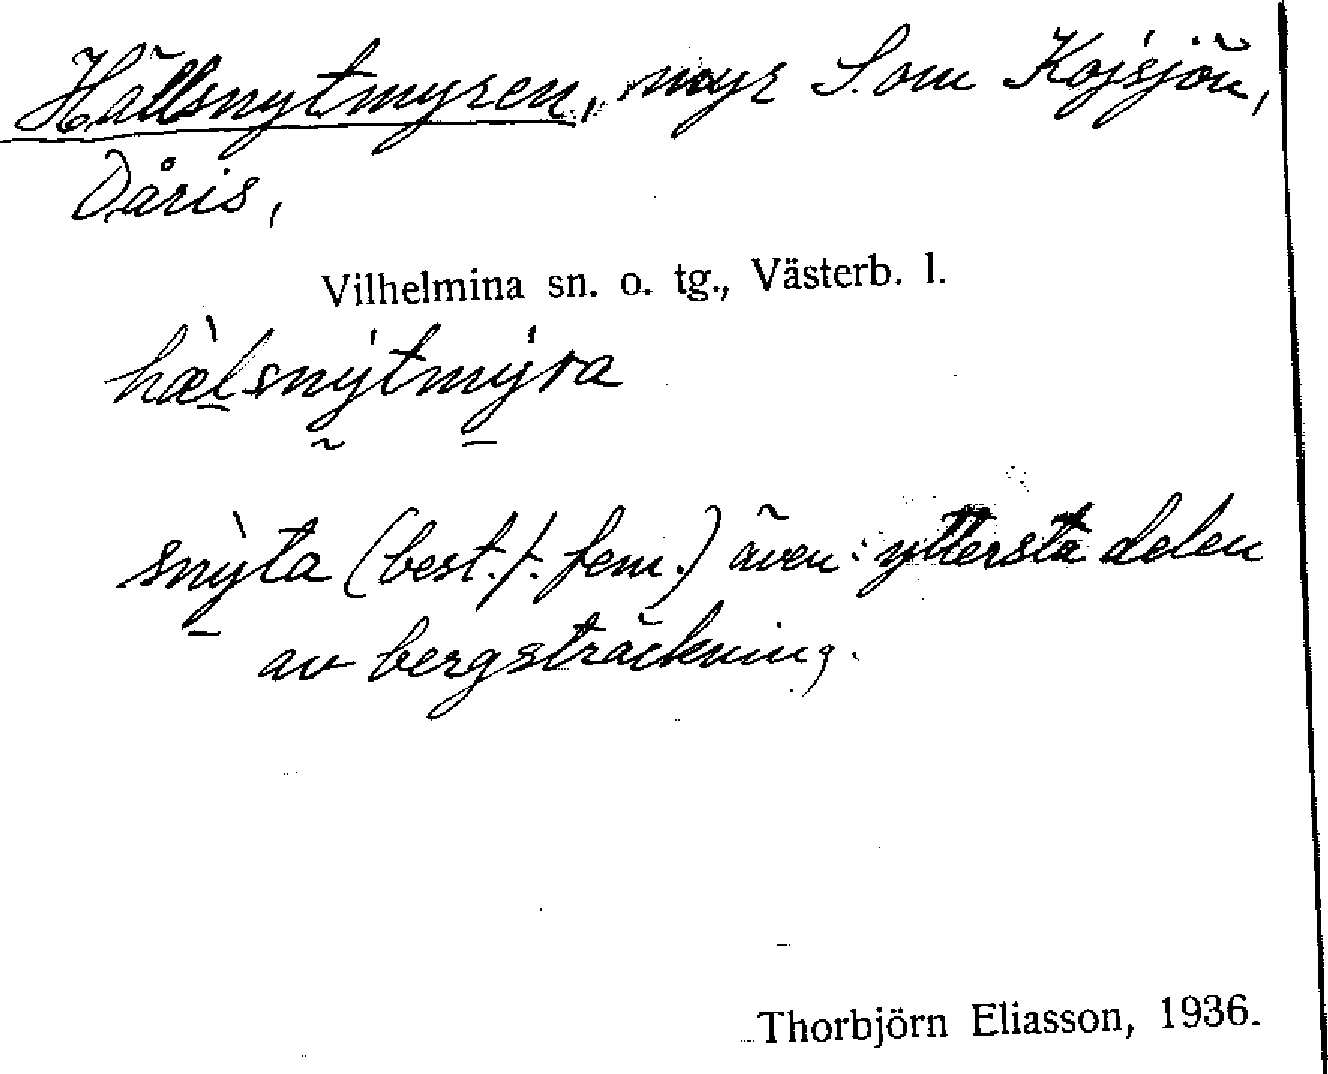 Hällsnytmyren, myr S. om Kojsjön,
Dåris,
Vilhelmina sn. o. tg., Västerb. l.
hæ̀lsnýtmýra
snỳta (best. f. fem.) även: yttersta delen
av bergsträckning.
Thorbjörn Eliasson, 1936.